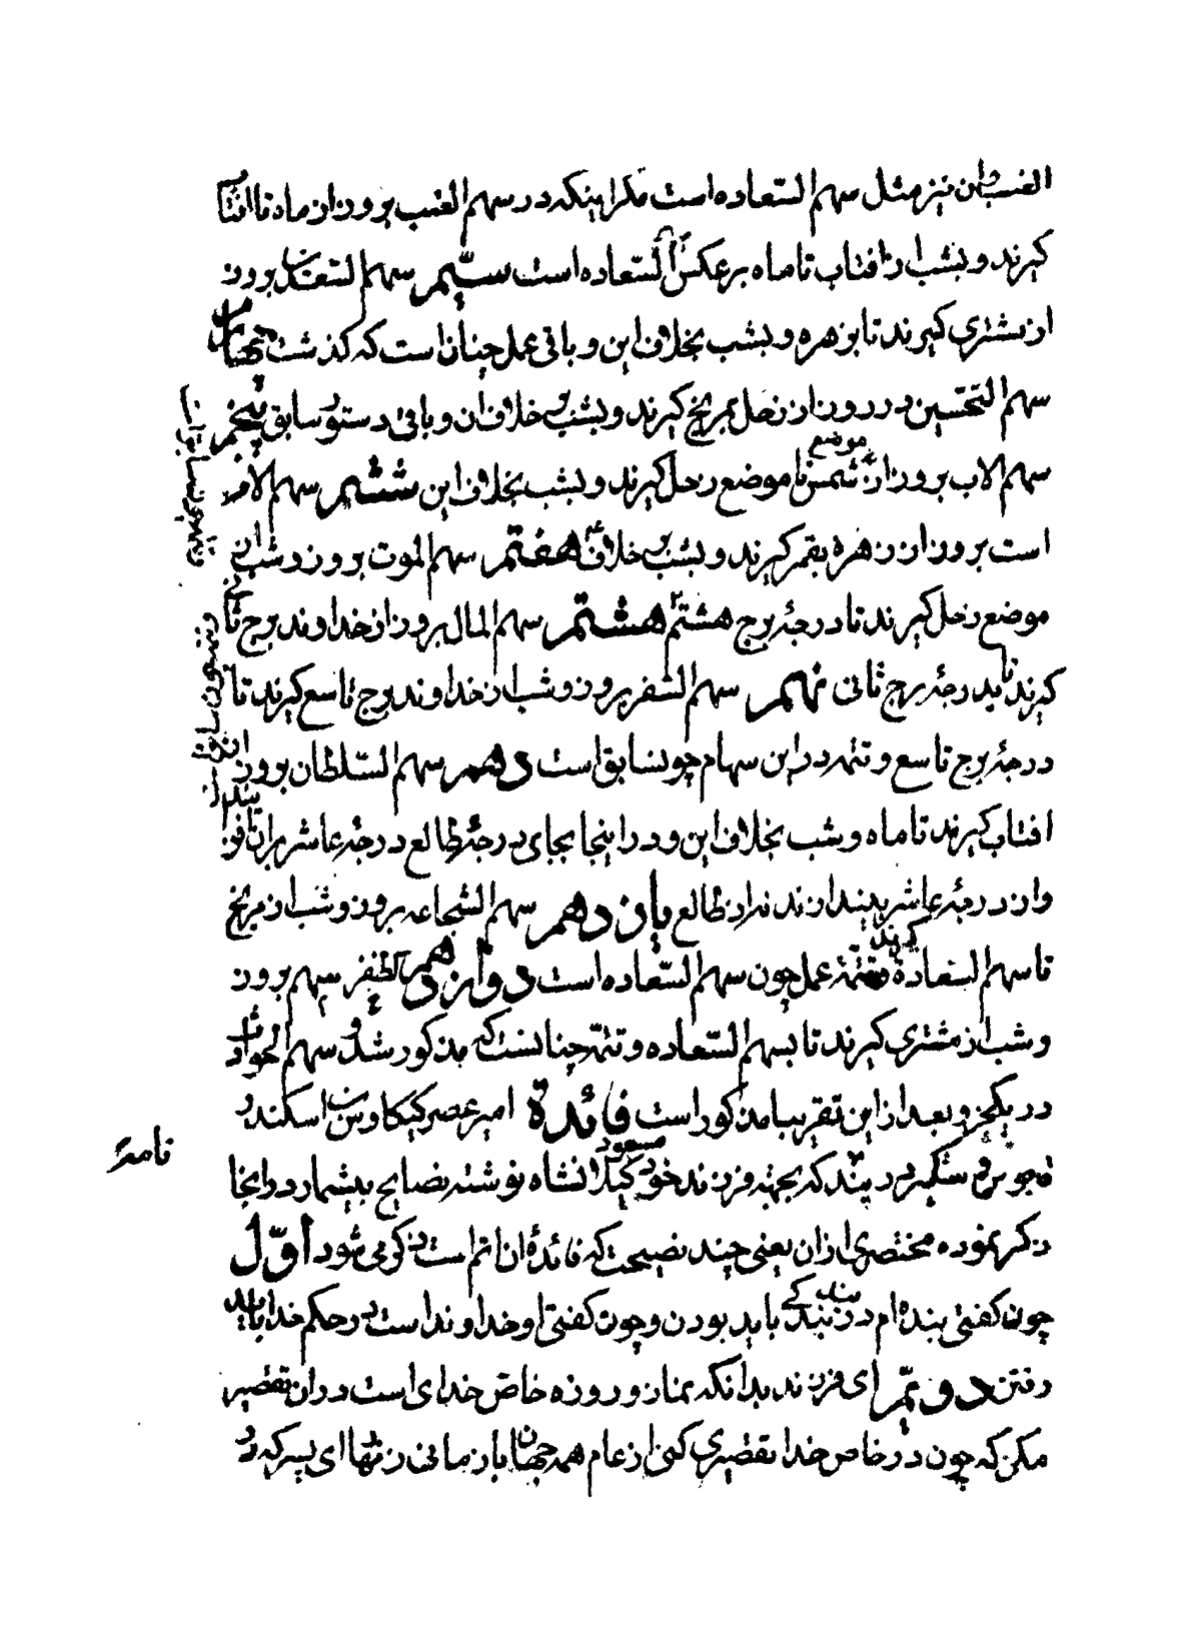 الغیب وان نیز مثل سهم السّعاده است مکر اینکه در سهم الغیب بروز از ماه تا افتاب
کیرند و بشب از افتاب تا ماه بر عکس السّعاده است سیّم سهم السّعدین بروز
از مشتری کیرند تا بزهره و بشب بخلاف این و باقی عمل چنان است که کذشت چهارم
سهم النّحسین در روز از زحل بمریخ کیرند و بشب بر خلاف ان و باقی دستور سابق پنجم
سهم الاب بروز از موضع شمس تا موضع زحل کیرند و بشب بخلاف این ششم سهم الام
است بروز از زهره بقمر کیرند و بشب بر خلاف هفتم سهم الموت بروز و شب از
موضع زحل کیرند تا درجهٔ برج هشتم هشتم سهم المال بروز از خداوند برج ثانی
کیرند تا بدرجهٔ برج ثانی نهم سهم السّفر بروز و شب از خداوند برج تاسع کیرند تا
درجهٔ برج تاسع و تتمه در این سهام چون سابق است دهم سهم السّلطان بروز از
افتاب کیرند تا ماه و شب بخلاف این و در اینجا بجای درجهٔ طالع درجهٔ عاشر بران
وان درجهٔ عاشر بیندازند نه از طالع یازدهم سهم الشجاعه بروز و شب از مریخ
تا سهم السعادة کیرند و تتمّهٔ عمل چون سهم السّعاده است دوازدهم سهم الظفر بروز
و شب از مشتری کیرند تا بسهم السّعاده و تتمّه چنانست که مذکور شد و سهم الحوادث
در و بعد از این تقریبا مذکور است فائدة امیر عصر کیکاوس بن اسکندر
در پند که بجهته فرزند خود کیلانشاه نوشته نصایح بیشمار در انجا
ذکر نموده مختصری از ان یعنی چند نصیحت که فائدهٔ ان اتم است ذکر می شود اوّل
چون کفتی بنده ام در بند بندکی باید بودن و چون کفتی او خداوند است در حکم خدا باید
رفتن دویّم ای فرزند بدانکه نماز و روزه خاصّ خدای است در ان تقصیر
مکن که چون در خاص خدا تقصیری کنی از عام همه جهان باز مانی زنهار ای پسر که در
نامهٔ